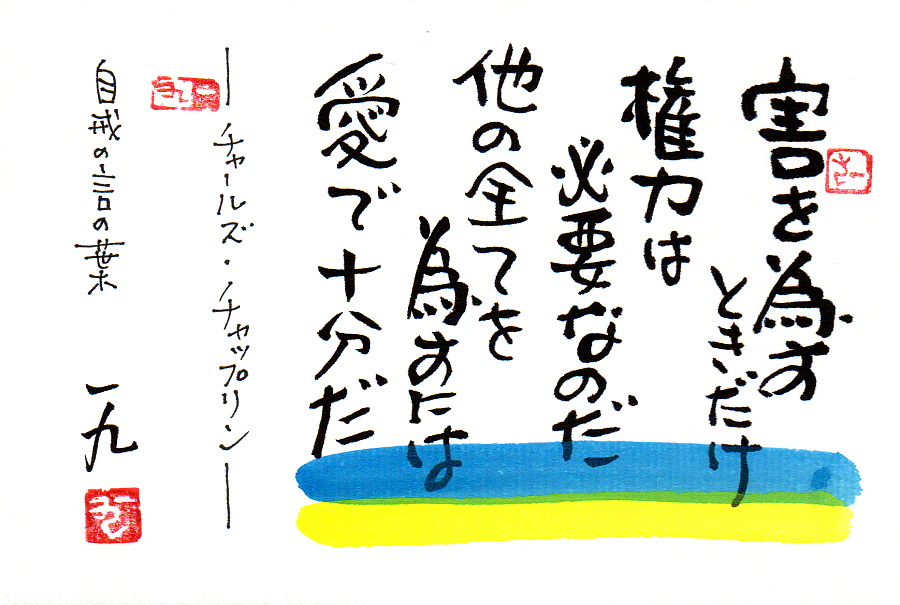 害を為す
ときだけ
権力は
必要なのだ
他の全てを
為すには
愛で十分だ
―チャールズ・チャップリン―
自戒の言の葉 一九